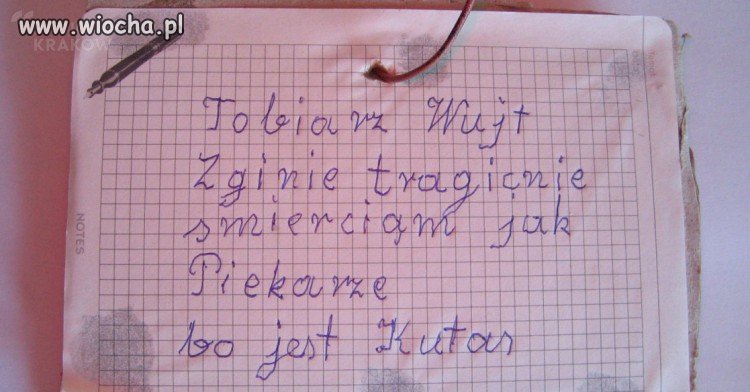 www.wiocha.pl
KRAKÓW
Tobiarz Wujt
Zginie tragicnie
smierciąm jak
Piekarze
bo jest Kutas
NOTES